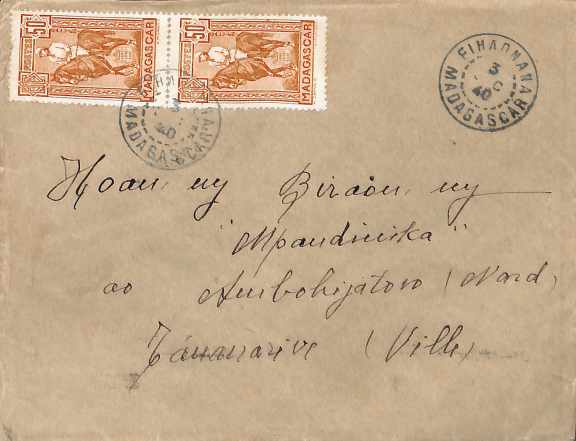 50c POSTES MADAGASCAR
50c POSTES MADAGASCAR
FIHAONANA
3
40
MADAGASCAR
3
40
MADAGASCAR
Hoan, ny Biraon, ny
"Mpandinika"
ao Ambohijatovo (Nord)
Tananarive (Ville)